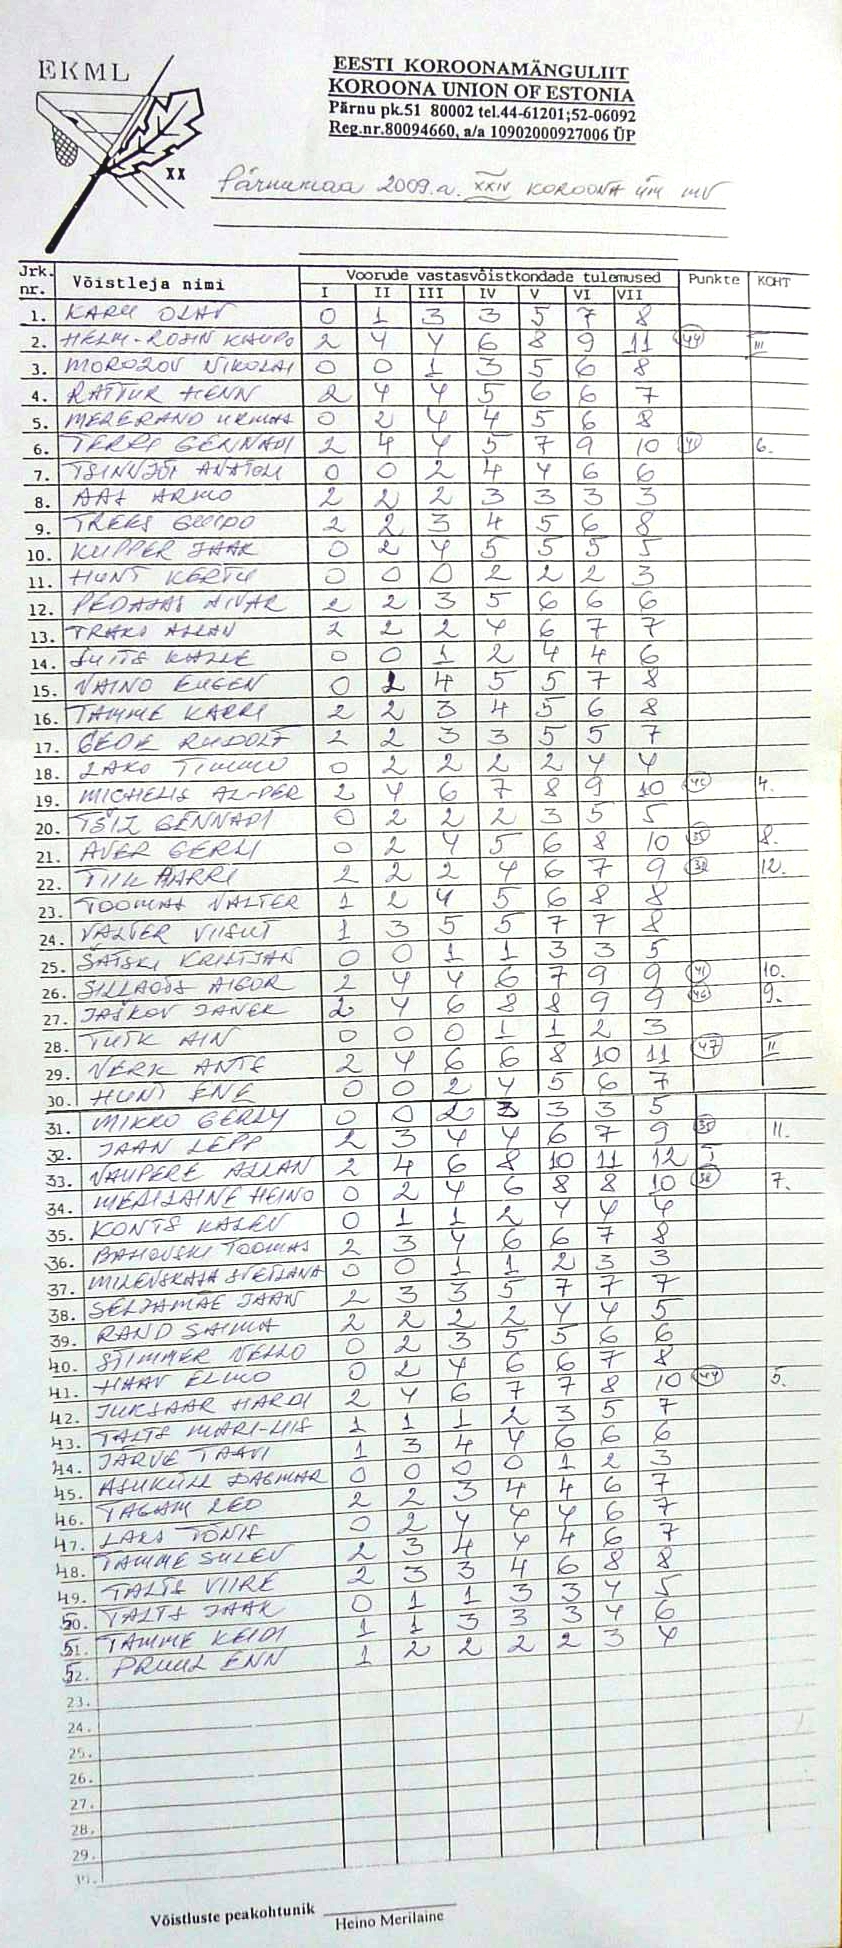 EKML
XX
EESTI KOROONAMÄNGULIIT
KOROONA UNION OF ESTONIA
Pärnu pk.51 80002 tel.44-61201;52-06092
Reg.nr.80094660, a/a 10902000927006 ÜP
Pärnumaa 2009.a. XXIV KOROONA ÜM MV
Jrk. nr. Võistleja nimi Voorude vastasvõistkondade tulemused Punkte KOHT
I II III IV V VI VII
1. KARU OLAV 0 1 3 3 5 7 8
2. HELM-ROSIN KAUPO 2 4 4 6 8 9 11 44 III
3. MOROZOV NIKOLAI 0 0 1 3 5 6 8
4. RATTUR HENN 2 4 4 5 6 6 7
5. MERERAND URMAS 0 2 4 4 5 6 8
6. TERRI GENNADI 2 4 4 5 7 9 10 41 6.
7. ANATOLI 0 0 2 4 4 6 6
8. AAS ARMO 2 2 2 3 3 3 3
9. TREES GUIDO 2 2 3 4 5 6 8
10. KUPPER JAAK 0 2 4 5 5 5 5
11. HUNT KERTU 0 0 0 2 2 2 3
12. PEDAJAS AIVAR 2 2 3 5 6 6 6
13. TRAKS ALLAN 2 2 2 4 6 7 7
14. SUITS KALLE 0 0 1 2 4 4 6
15. VAINO EUGEN 0 2 4 5 5 7 8
16. TAMME KARRI 2 2 3 4 5 6 8
17. RUDOLF 2 2 3 3 5 5 7
18. LAKS TIMMO 0 2 2 2 2 4 4
19. MICHELIS AL-PER 2 4 6 7 8 9 10 4.
20. TŠIZ GENNADI 0 2 2 2 3 5 5
21. AVER GERLI 0 2 4 5 6 8 10 8.
22. TIIK HARRI 2 2 2 4 6 7 9 12.
23. TOOMAS VALTER 1 2 4 5 6 8 8
24. VALTER VIISUT 1 3 5 5 7 7 8
25. ŠATSKI KRISTJAN 0 0 1 1 3 3 5
26. SILLAOTS AIGOR 2 4 4 6 7 9 9 41 10.
27. JAŠKOV JANEK 2 4 6 8 8 9 9 46 9.
28. TUTK AIN 0 0 0 1 1 2 3
29. VERK ANTS 2 4 6 6 8 10 11 47 II
30. HUNT ENE 0 0 2 4 5 6 7
31. MIKKO GERLY 0 0 2 3 3 3 5
32. JAAN LEPP 2 3 4 4 6 7 9 11.
33. VAUPERE ALLAN 2 4 6 8 10 11 12 I
34. MERILAINE HEINO 0 2 4 6 8 8 10 7.
35. KONTS KALEV 0 1 1 2 4 4 4
36. BAHOVSKI TOOMAS 2 3 4 6 6 7 8
37. MILEVSKAJA SVETLANA 0 0 1 1 2 3 3
38. SELJAMÄE JAAN 2 3 3 5 7 7 7
39. RAND SAIMA 2 2 2 2 4 4 5
40. STIMMER VELLO 0 2 3 5 5 6 6
41. HAAV ELMO 0 2 4 6 6 7 8
42. JUKSAAR HARDI 2 4 6 7 7 8 10 44 5.
43. TALTS MARI-LIIS 1 1 1 2 3 5 7
44. JÄRVE TAAVI 1 3 4 4 6 6 6
45. ASUKÜLL DAGMAR 0 0 0 0 1 2 3
46. TAGAM LEO 2 2 3 4 4 6 7
47. LAKS TÕNIS 0 2 4 4 4 6 7
48. TAMME SULEV 2 3 4 4 4 6 7
49. TALTS VIIRE 2 3 3 4 6 8 8
50. TALTS JAAK 0 1 1 3 3 4 5
51. TAMME KEIDI 1 1 3 3 3 4 6
52. PRUUL ENN 1 2 2 2 2 3 4
23.
24.
25.
26.
27.
28.
29.
Võistluste peakohtunik
Heino Merilaine